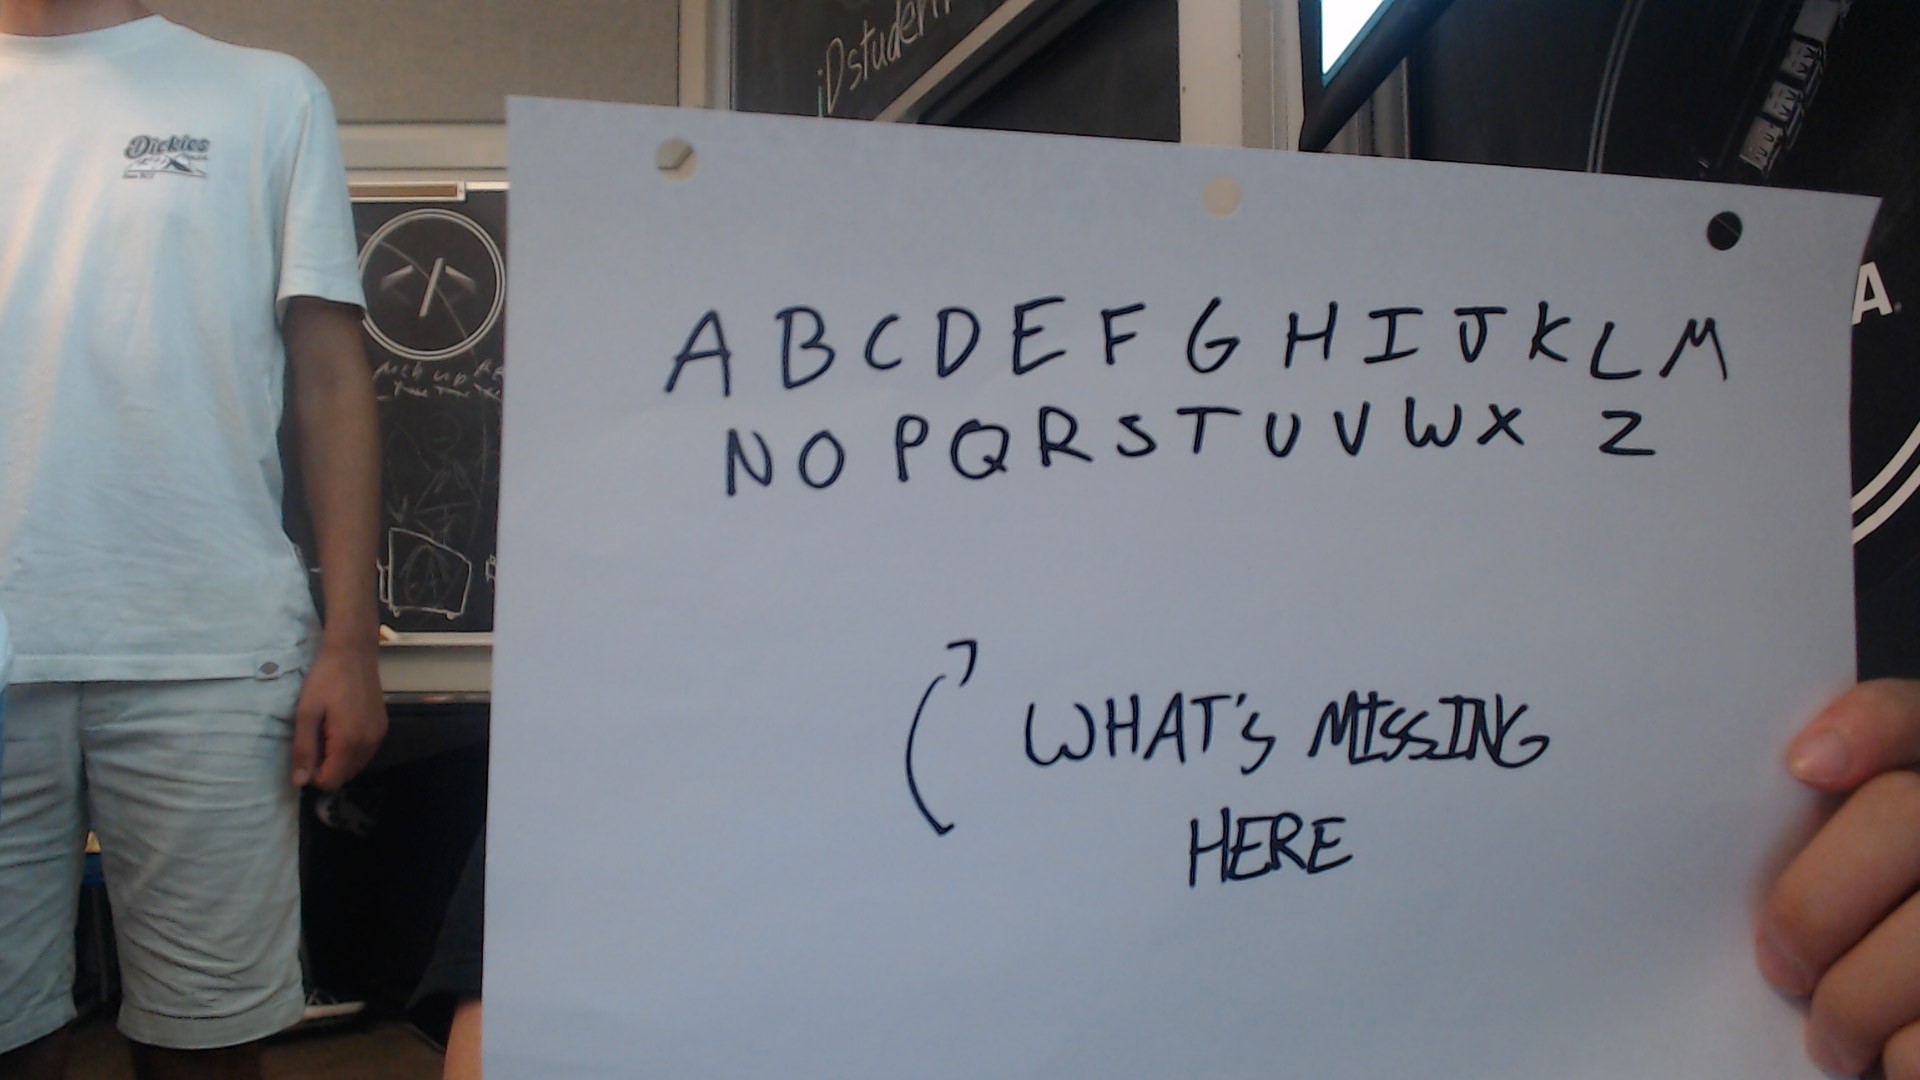 iDstuden
Dickies
</>
A B C D E F G H I J K L M
N O P Q R S T U V W X Z
WHAT's MISSING
HERE
A